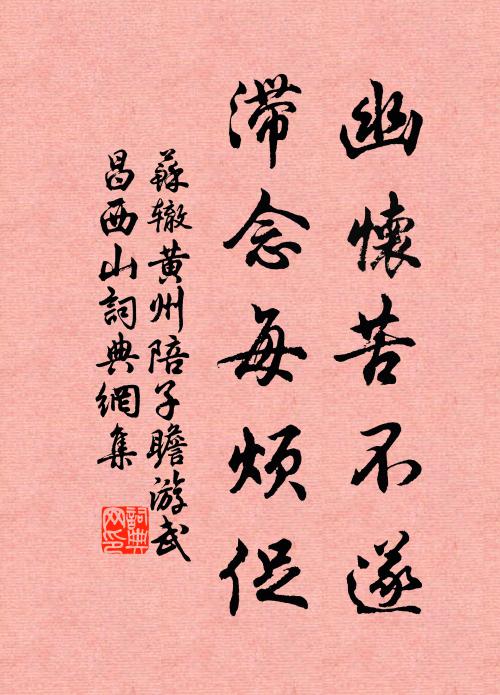 幽懷苦不遂
滯念每烦促
蘇辙黄州陪子瞻游武
昌西山詞典網集
詞典
网印